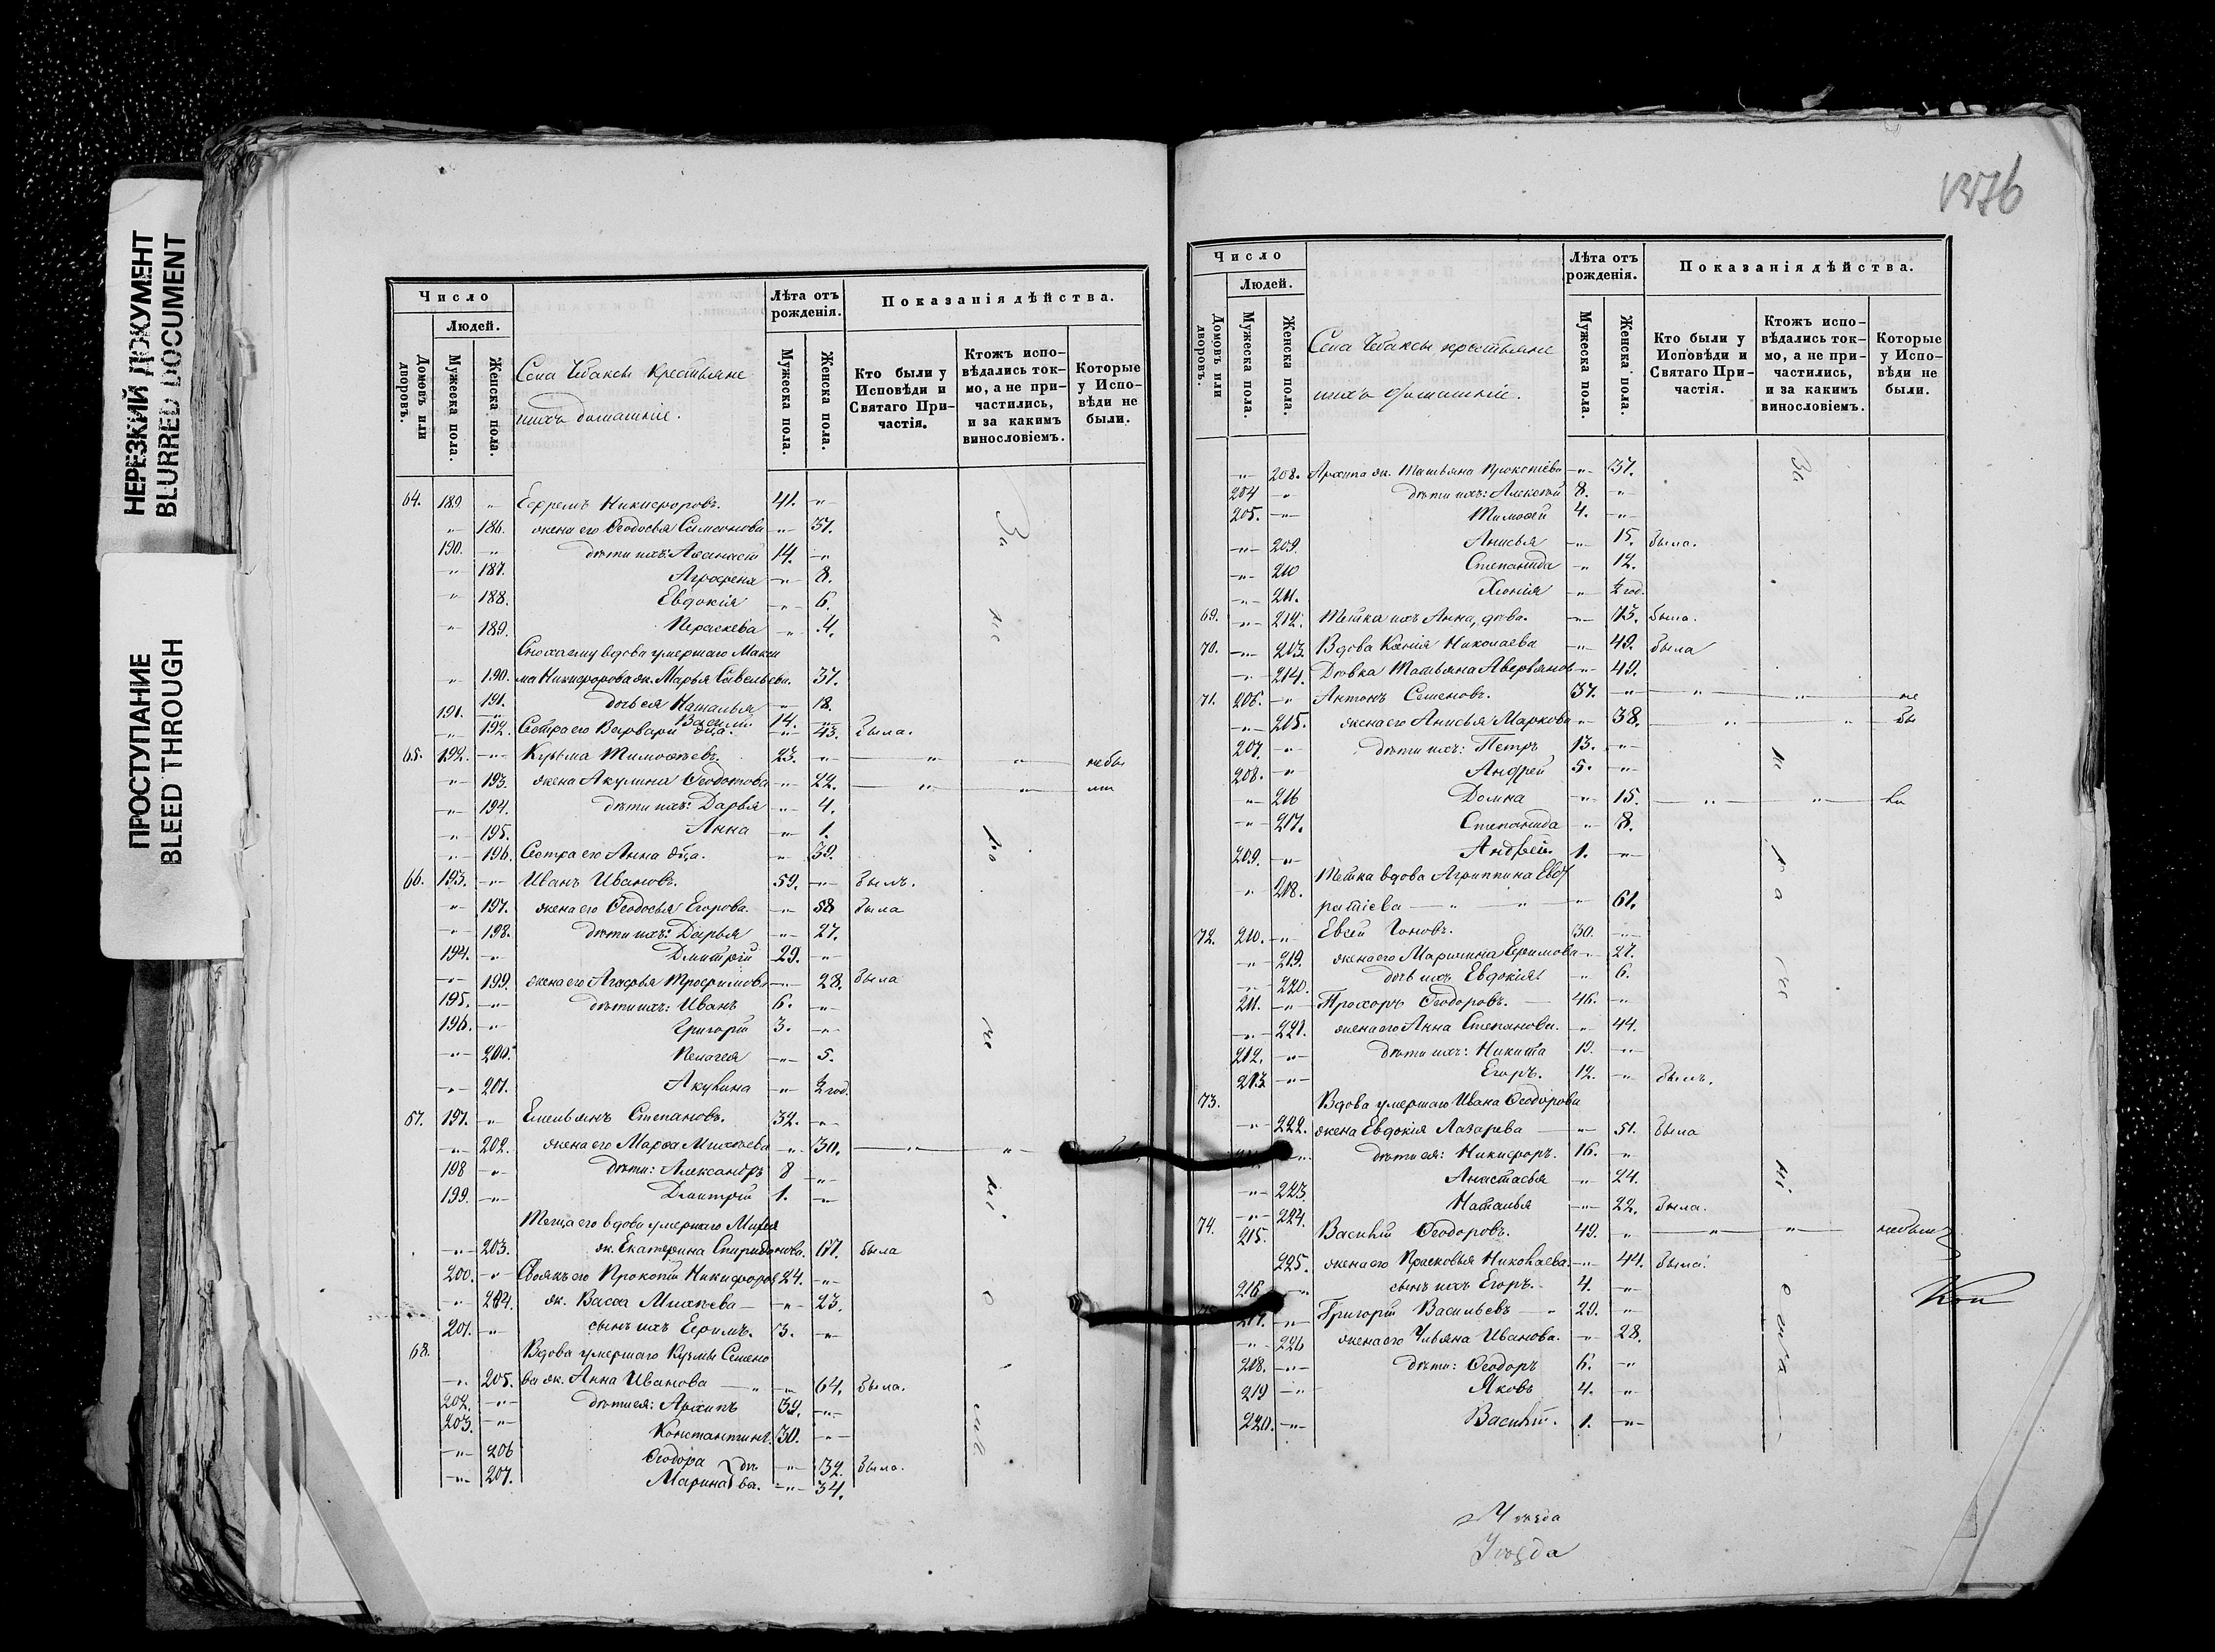 НЕРЕЗКИЙ ДОКУМЕНТ
BLURRED DOCUMENT
ПРОСТУПАНИЕ
BLEED THROUGH
Число
Людей.
Домовъ или дворовъ.
Мужеска пола.
Женска пола.
Села Чебаксы крестьяне
ихъ домашніе.
Лѣта отъ рожденія.
Мужеска пола.
Женска пола.
Показанія дѣйства.
Кто были у Исповѣди и Святаго Причастія.
Ктожъ исповѣдались токмо, а не причастились, и за какимъ винословіемъ.
Которые у Исповѣди не были.
64. 189 " Ефремъ Никифоровъ. 41. "
" 186. жена его Ѳеодосья Симеонова " 37.
190. " дѣти ихъ: Аѳанасій 14. "
" 187. Агрофена " 8.
" 188. Евдокія " 6.
" 189. Пераскева " 4.
Сноха ему вдова умершаго Макси
" 190. ма Никифорова ж. Марья Савельева. 37.
" 191. дочь ея Наталья " 18.
191. " Василій 14. "
" 192. Сестра его Варвара дѣца. " 43. была.
65. 192. " Кузьма Тимоѳеевъ. 23. " " " небы
" 193. жена Акулина Ѳеодотова " 22. " " ли
" 194. дѣти ихъ: Дарья " 4.
" 195. Анна " 1.
" 196. Сестра его Анна дѣца. " 39.
66. 193. " Иванъ Ивановъ. 59. " былъ.
" 197. жена его Ѳеодосья Егорова. " 58 была
" 198. дѣти ихъ: Дарья " 27.
194. " Дмитрій 29. "
" 199. жена его Агафья Трофимова " 28. была
195. " дѣти ихъ: Иванъ 6. "
196. " Григорій 3. "
" 200. Пелагея " 5.
" 201. Акулина " ½ год.
67. 197. " Емельянъ Степановъ. 32. "
" 202. жена его Марѳа Михѣева " 30. " "
198 " дѣти: Александръ 8 "
199. " Дмитрій 1. "
Теща его вдова умершаго Михея
" 203. ж. Екатерина Спиридонова. 67. была
200. " Своякъ его Прокопій Никифоров 24. "
" 204. ж. Васса Михѣева " 23.
201. " сынъ ихъ Ефимъ. 3. "
68. Вдова умершаго Кузмы Семено
" 205. ва ж. Анна Иванова " 64. была.
202. " дѣти ея: Архипъ 39. "
203. " Константинъ. 30. "
" 206 Ѳеодора дѣ " 32. была.
" 207. Марина ва. " 34.
1376
Число
Людей.
Домовъ или дворовъ.
Мужеска пола.
Женска пола.
Села Чебаксы крестьяне
ихъ домашніе.
Лѣта отъ рожденія.
Мужеска пола.
Женска пола.
Показанія дѣйства.
Кто были у Исповѣди и Святаго Причастія.
Ктожъ исповѣдались токмо, а не причастились, и за какимъ винословіемъ.
Которые у Исповѣди не были.
" 208. Архипа ж. Татьяна Прокопіева " 37.
204 " дѣти ихъ: Алексѣй 8. "
205. " Тимоѳей 4. "
" 209. Анисья " 15. была.
" 210 Степанида " 12.
" 211. Хіонія " ½ год.
69. " 212. Тетка ихъ Анна, дѣва. " 73. была.
70. " 213. Вдова Ксенія Николаева " 49. была
" 214. Дѣвка Татьяна Аверьянов " 49.
71. 206. " Антонъ Семеновъ. 37. " " " не
" 215. жена его Анисья Маркова " 38. " " бы
207. " дѣти ихъ: Петръ 13. "
208. " Андрей 5. "
" 216 Домна " 15. " " ли
" 217. Степанида " 8.
209. " Андрей. 1. "
Тетка вдова Агриппина Евс
" 218. ратіева " " 61.
72. 210. " Евсей Іоновъ. 30. "
" 219. жена его Маріина Ефимова " 27.
" 220. дочь ихъ Евдокія " 6.
211. " Прохоръ Ѳеодоровъ. 46. "
" 221. жена его Анна Степанова. " 44.
212. " дѣти ихъ: Никита 19. "
213. " Егоръ. 12. " былъ.
73. Вдова умершаго Ивана Ѳеодорова
" 222. жена Евдокія Лазарева " 51. была
" дѣти ея: Никифоръ. 16. "
" 223 Анастасья " 24.
" 224. Наталья " 22. была.
74. 215. Василій Ѳеодоровъ. 49. " " " небылъ
225. жена его Прасковья Николаева. " 44. была.
216 " сынъ ихъ Егоръ. 4. "
217. " Григорій Васильевъ " 29. "
" 226 жена его Ульяна Иванова. " 28.
218. " дѣти: Ѳеодоръ 6. "
219 " Яковъ 4. "
220. " Василій. 1. "